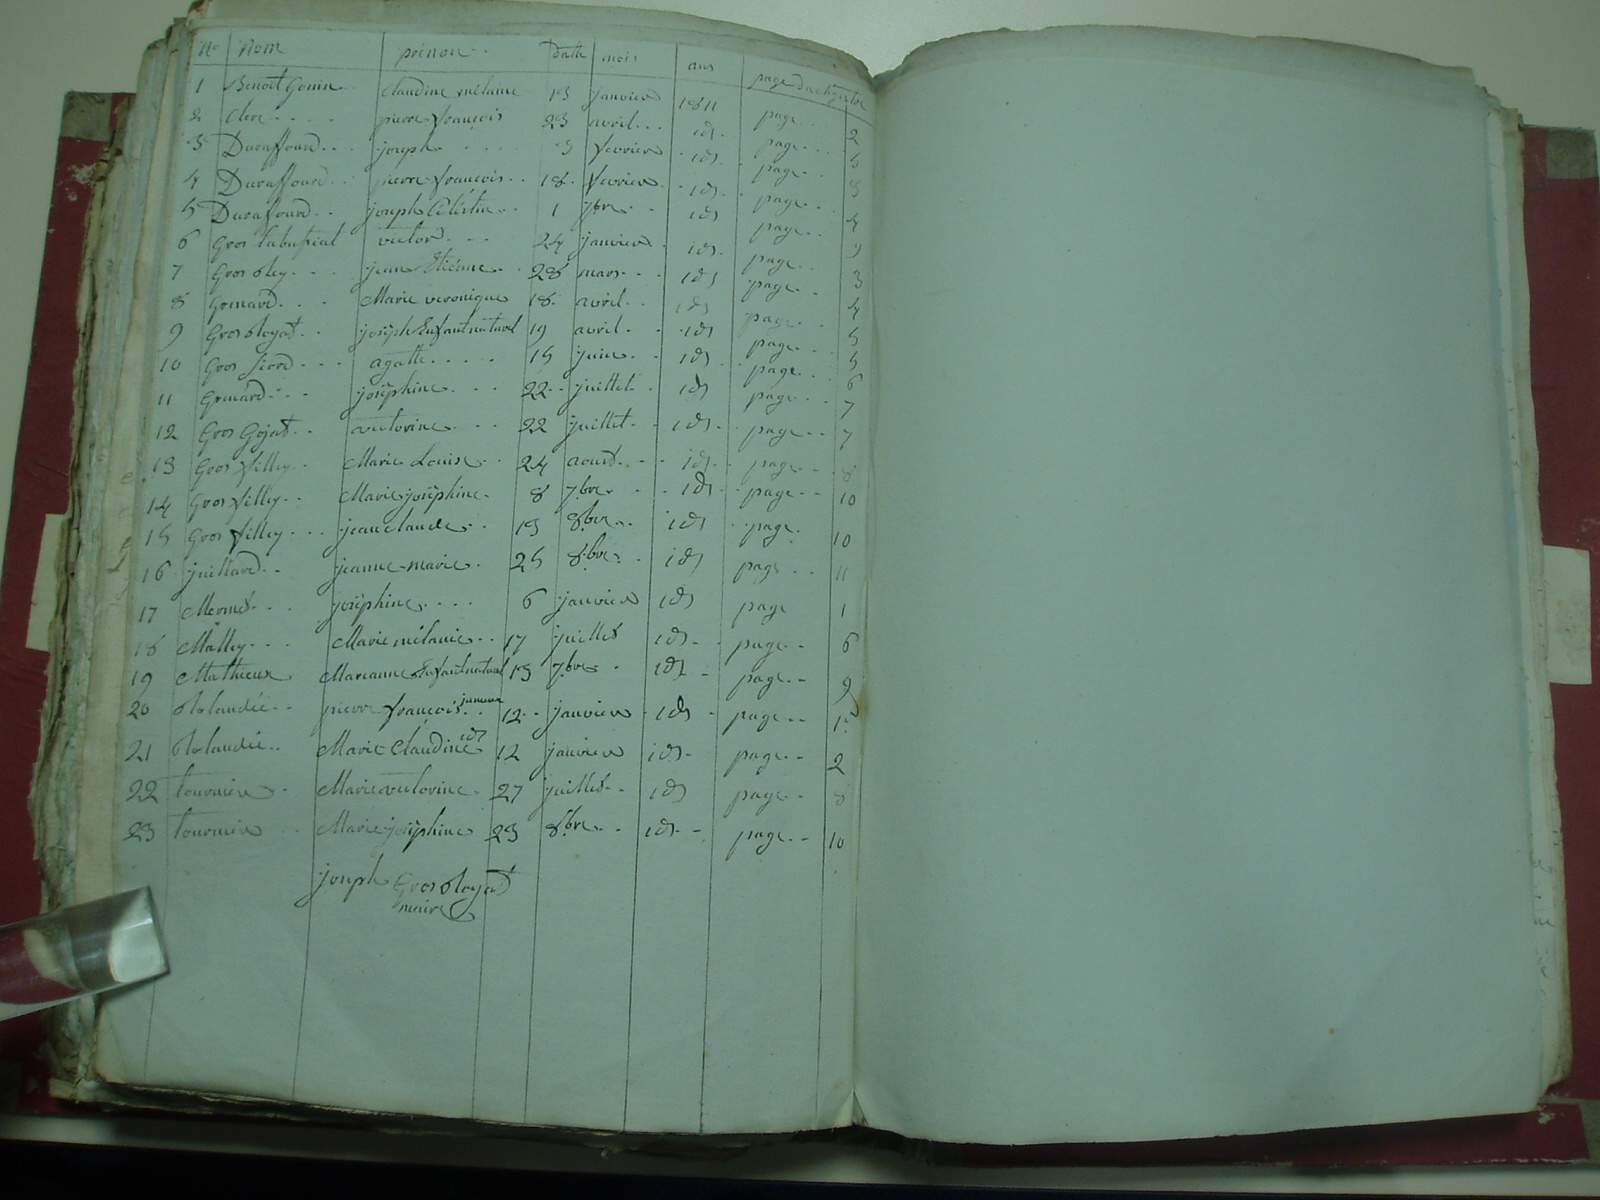 No Nom prénom Date mois ans page du registre
1 Benoit Gonin claudine mélanie 13 janvier 1811 page 2
2 Clerc pierre françois 23 avril id page 5
3 Duraffourd joseph 3 fevrier id page 3
4 Duraffourd pierre françois 18 fevrier id page 4
5 Duraffourd joseph Célestin 1 7bre id page 9
6 Gros victor 24 janvier id page 3
7 Gros jean Etienne 28 mars id page 4
8 Grenard Marie veronique 18 avril id page 5
9 Gros joseph Enfant naturel 19 avril id page 5
10 Gros agathe 15 juin id page 6
11 Grenard joséphine 22 juillet id page 7
12 Gros victorine 22 juillet id page 7
13 Gros filley Marie Louise 24 aoust id page 8
14 Gros filley Marie joséphine 8 7bre id page 10
15 Gros filley jean claude 13 8bre id page 10
16 juillard jeanne marie 25 8bre id page 11
17 Mermet joséphine 6 janvier id page 1
18 Malley Marie mélanie 17 juillet id page 6
19 Mathieux Marianne Enfant naturel 13 7bre id page 9
20 pierre françois jumeau 12 janvier id page 1
21 Marie Claudine id 12 janvier id page 2
22 tournier Marie victorine 27 juillet id page 8
23 tournier Marie joséphine 23 8bre id page 10
joseph Gros
maire